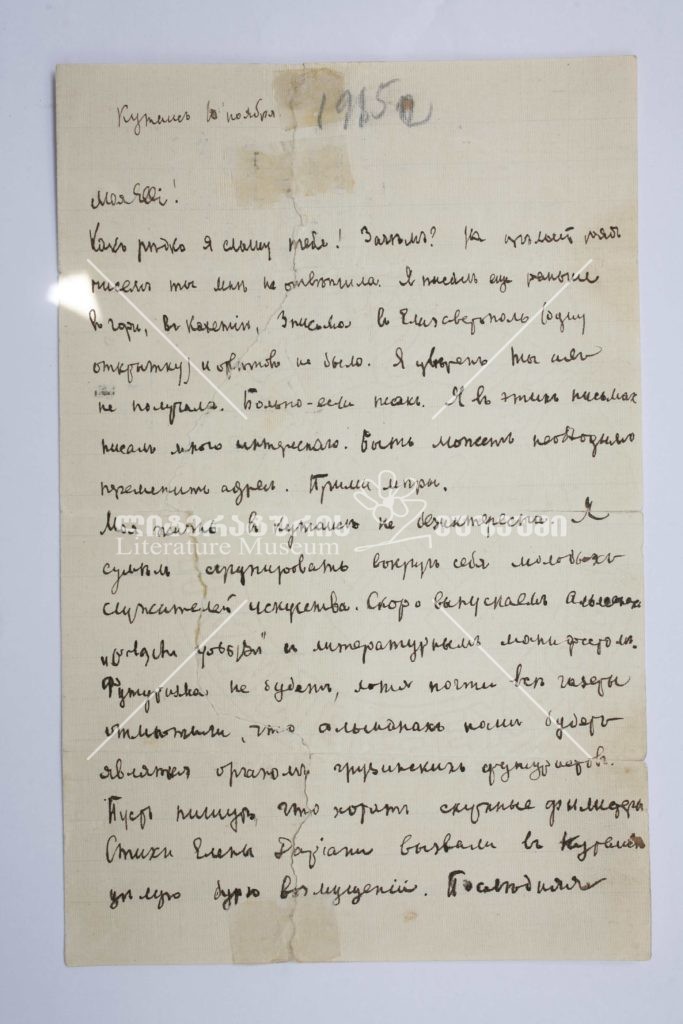 Кутаисъ 10 ноября.
1915 г
Моя Elli!
Какъ рѣдко я слышу тебя! Зачѣмъ? На цѣлый рядъ
писемъ ты мнѣ не отвѣтила. Я писалъ еще раньше
въ Гори, въ Кахетіи, 3 письма въ Елизаветполь (одну
открытку) и отвѣтовъ не было. Я увѣренъ ты ихъ
не получала. Больно-если такъ. Я въ этихъ письмахъ
писалъ много интереснаго. Быть можетъ необходимо
перемѣнить адресъ. Прими мѣры.
Моя жизнь въ Кутаисѣ не безинтересна. Я
ლიტერატურის მუზეუმი
Literature Museum
сумѣлъ сгрупировать вокругъ себя молодыхъ
служителей искусства. Скоро выпускаемъ альманахъ
съ литературнымъ манифестомъ.
Футуризма не будетъ, хотя почти всѣ газеты
отмѣтили, что альманахъ нашъ будетъ
являться органомъ грузинскихъ футуристовъ.
Пусть пишутъ, что хотятъ скучные филистеры
Стихи Елены Даріани вызвали въ Кутаисѣ
цѣлую бурю возмущеній. Послѣдняя